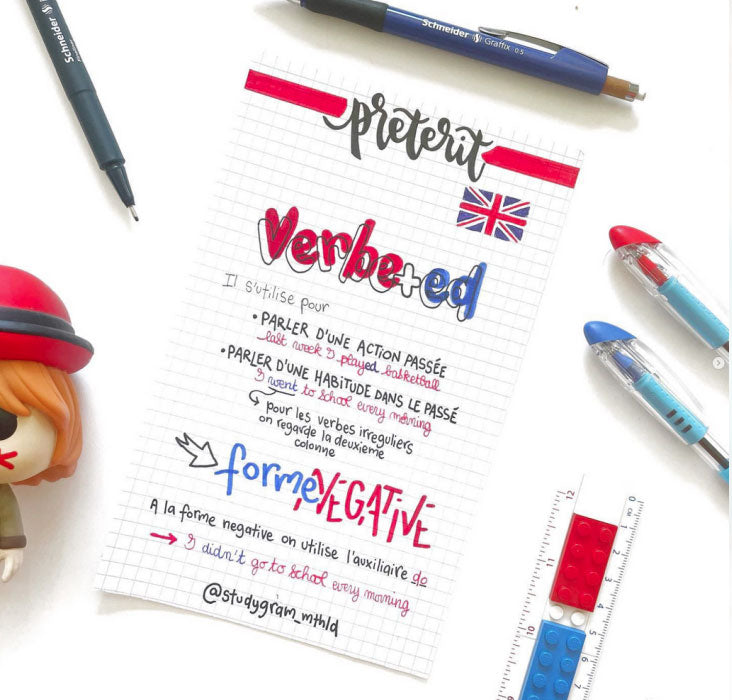 Schneider
Schneider Graffix 0.5
preterit
verbe+ed
Il s'utilise pour
• PARLER D'UNE ACTION PASSÉE
last week I played basketball
• PARLER D'UNE HABITUDE DANS LE PASSÉ
I went to school every morning
pour les verbes irreguliers
on regarde la deuxieme
colonne
forme NEGATIVE
A la forme negative on utilise l'auxiliaire do
I didn't go to school every morning
@studygram_mthld
0 CM 1 2 3 4 5 6 7
12 11 10